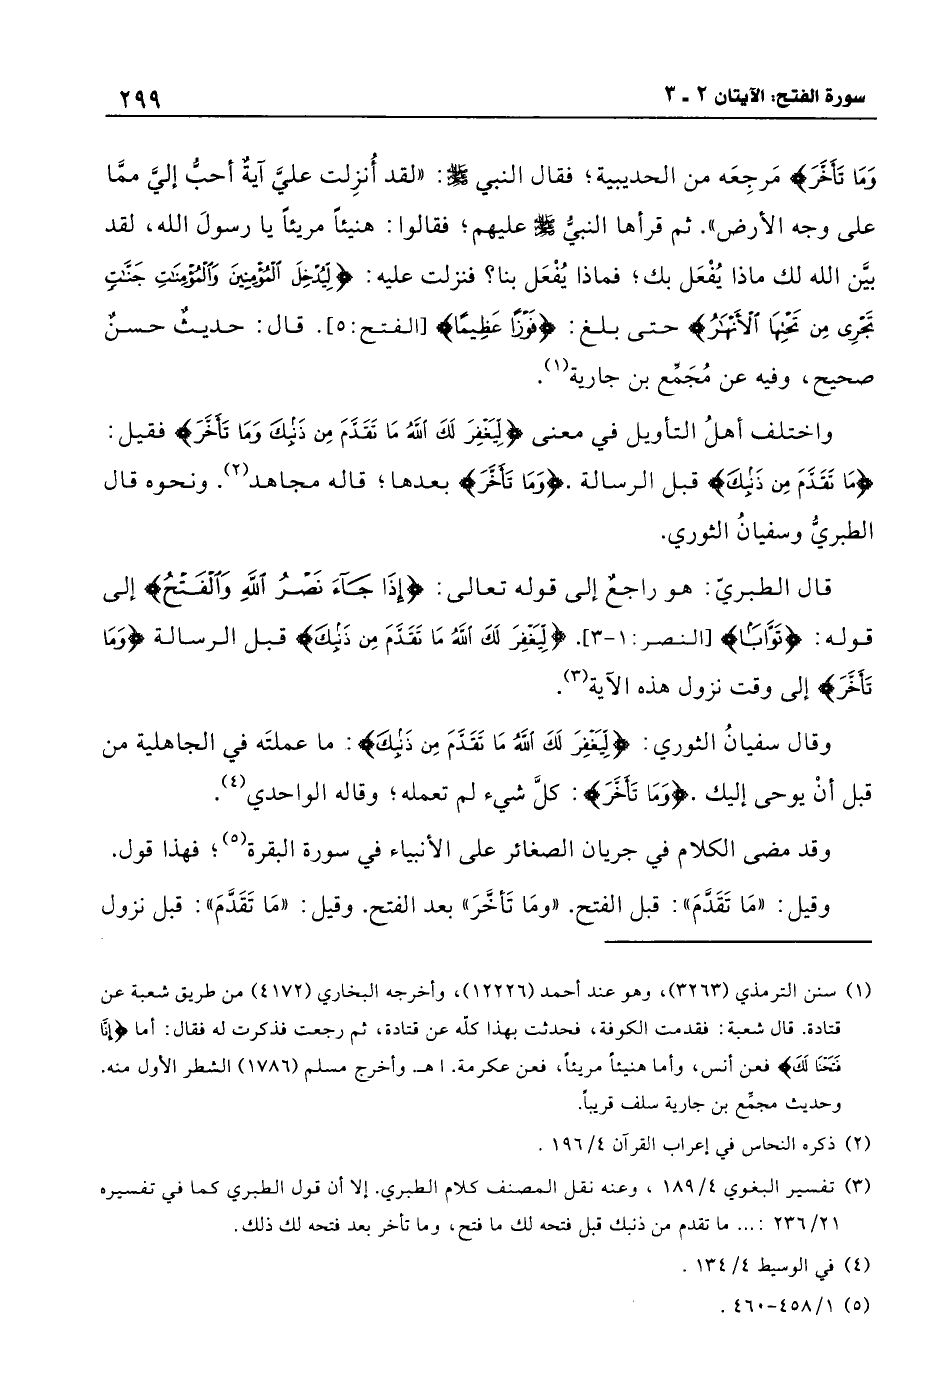 سورة الفتح: الآيتان ٢ - ٣
٢٩٩
وَمَا تَأَخَّرَ﴾ مَرجِعَه من الحديبية؛ فقال النبي ﷺ: «لقد أُنزِلت عليَّ آيةٌ أحبُّ إليَّ ممَّا
على وجه الأرض». ثم قرأها النبيُّ ﷺ عليهم؛ فقالوا: هنيئاً مريئاً يا رسولَ الله، لقد
بيَّن الله لك ماذا يُفْعَل بك؛ فماذا يُفْعَل بنا؟ فنزلت عليه: ﴿لِّيُدْخِلَ ٱلْمُؤْمِنِينَ وَٱلْمُؤْمِنَٰتِ جَنَّٰتٍ
تَجْرِى مِن تَحْتِهَا ٱلْأَنْهَٰرُ﴾ حتى بلغ: ﴿فَوْزًا عَظِيمًا﴾ [الفتح:٥]. قال: حديثٌ حسنٌ
صحيح، وفيه عن مُجَمِّع بن جارية(١).
واختلف أهلُ التأويل في معنى ﴿لِّيَغْفِرَ لَكَ ٱللَّهُ مَا تَقَدَّمَ مِن ذَنۢبِكَ وَمَا تَأَخَّرَ﴾ فقيل:
﴿مَا تَقَدَّمَ مِن ذَنۢبِكَ﴾ قبل الرسالة .﴿وَمَا تَأَخَّرَ﴾ بعدها؛ قاله مجاهد(٢). ونحوه قال
الطبريُّ وسفيانُ الثوري.
قال الطبريّ: هو راجعٌ إلى قوله تعالى: ﴿إِذَا جَآءَ نَصْرُ ٱللَّهِ وَٱلْفَتْحُ﴾ إلى
قوله: ﴿تَوَّابَۢا﴾ [النصر:١-٣]. ﴿لِّيَغْفِرَ لَكَ ٱللَّهُ مَا تَقَدَّمَ مِن ذَنۢبِكَ﴾ قبل الرسالة ﴿وَمَا
تَأَخَّرَ﴾ إلى وقت نزول هذه الآية(٣).
وقال سفيانُ الثوري: ﴿لِّيَغْفِرَ لَكَ ٱللَّهُ مَا تَقَدَّمَ مِن ذَنۢبِكَ﴾: ما عملتَه في الجاهلية من
قبل أنْ يوحى إليك .﴿وَمَا تَأَخَّرَ﴾: كلَّ شيء لم تعمله؛ وقاله الواحدي(٤).
وقد مضى الكلام في جريان الصغائر على الأنبياء في سورة البقرة(٥)؛ فهذا قول.
وقيل: «مَا تَقَدَّمَ»: قبل الفتح. «ومَا تَأخَّرَ» بعد الفتح. وقيل: «مَا تَقَدَّمَ»: قبل نزول
(١) سنن الترمذي (٣٢٦٣)، وهو عند أحمد (١٢٢٢٦)، وأخرجه البخاري (٤١٧٢) من طريق شعبة عن
قتادة. قال شعبة: فقدمت الكوفة، فحدثت بهذا كلّه عن قتادة، ثم رجعت فذكرت له فقال: أما ﴿إِنَّا
فَتَحْنَا لَكَ﴾ فعن أنس، وأما هنيئاً مريئاً، فعن عكرمة. ا هـ. وأخرج مسلم (١٧٨٦) الشطر الأول منه.
وحديث مجمِّع بن جارية سلف قريباً.
(٢) ذكره النحاس في إعراب القرآن ٤/ ١٩٦ .
(٣) تفسير البغوي ٤/ ١٨٩ ، وعنه نقل المصنف كلام الطبري. إلا أن قول الطبري كما في تفسيره
٢١/ ٢٣٦ :... ما تقدم من ذنبك قبل فتحه لك ما فتح، وما تأخر بعد فتحه لك ذلك.
(٤) في الوسيط ٤/ ١٣٤ .
(٥) ١/ ٤٥٨-٤٦٠ .